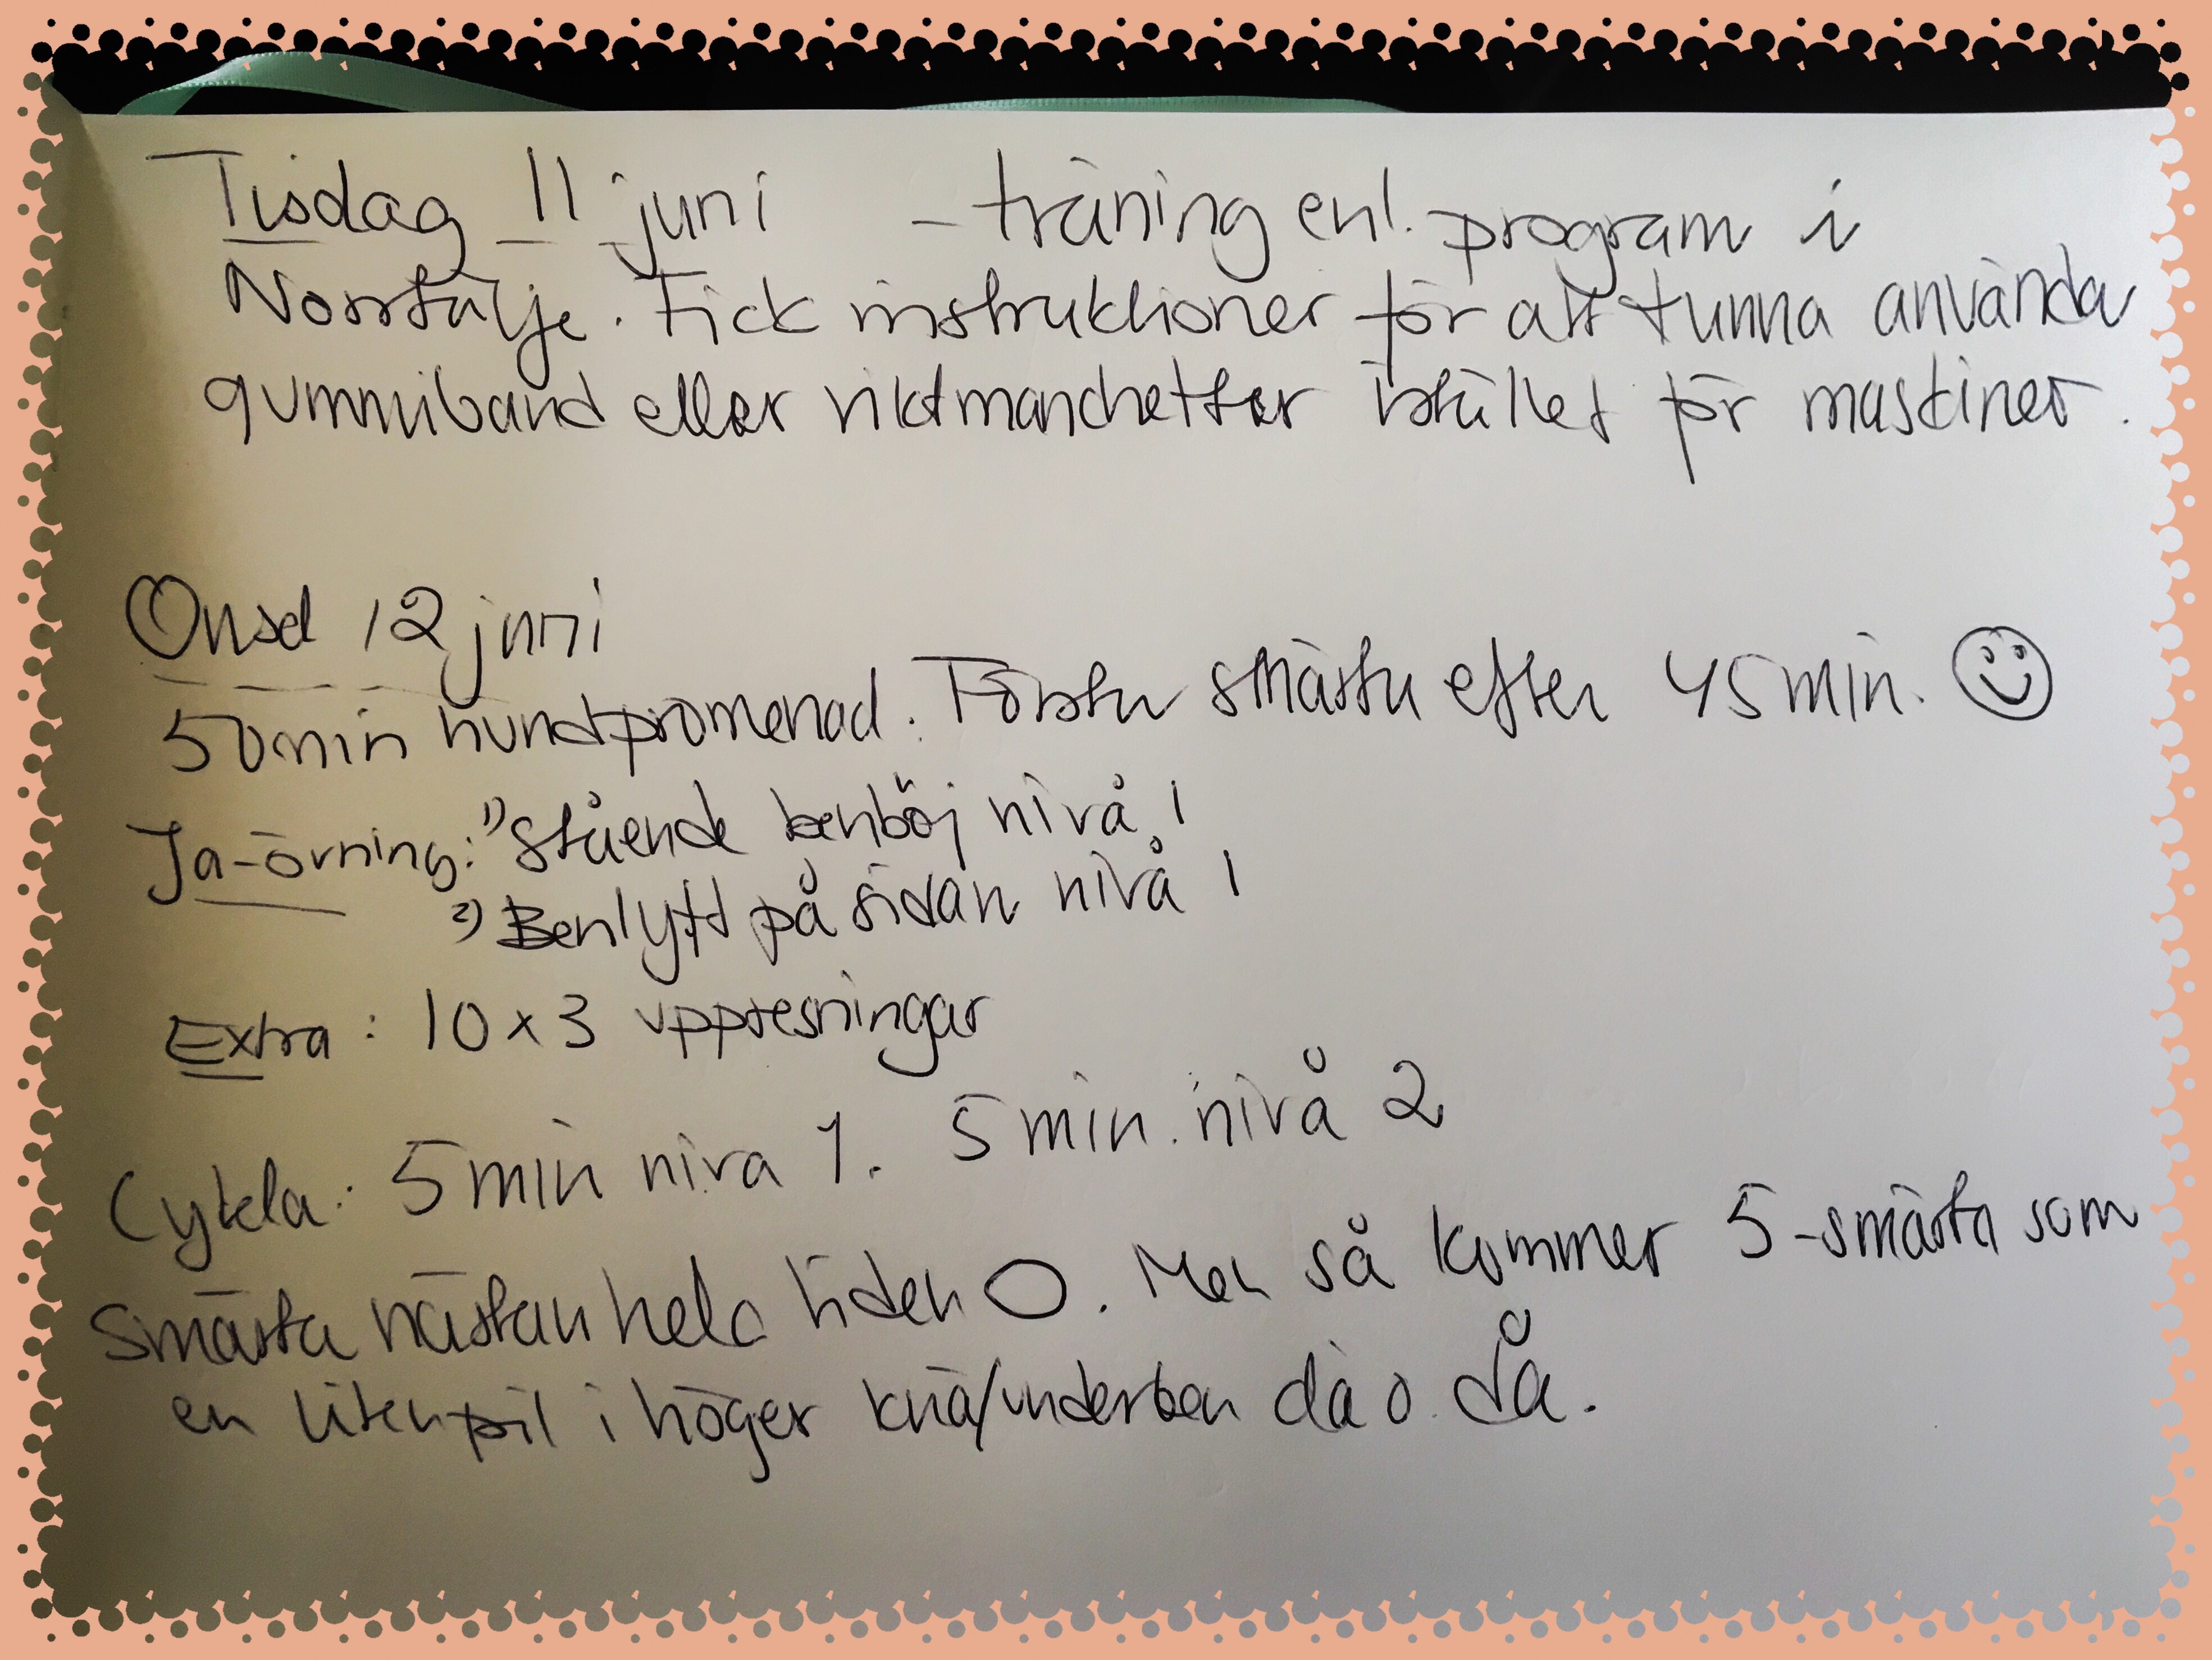 Tisdag 11 juni – träning enl. program i
Norrtälje. Fick instruktioner för att kunna använda
gummiband eller viktmanchetter istället för maskiner.
Onsd 12 juni
50 min hundpromenad. Första smärta efter 45 min. ☺
Ja-övning: 1) Stående benböj nivå 1
2) Benlyft på sidan nivå 1
Extra: 10 x 3 uppresningar
Cykla: 5 min nivå 1. 5 min. nivå 2
Smärta nästan hela tiden 0. Men så kommer 5-smärta som
en liten pil i höger knä/underben då o. då.